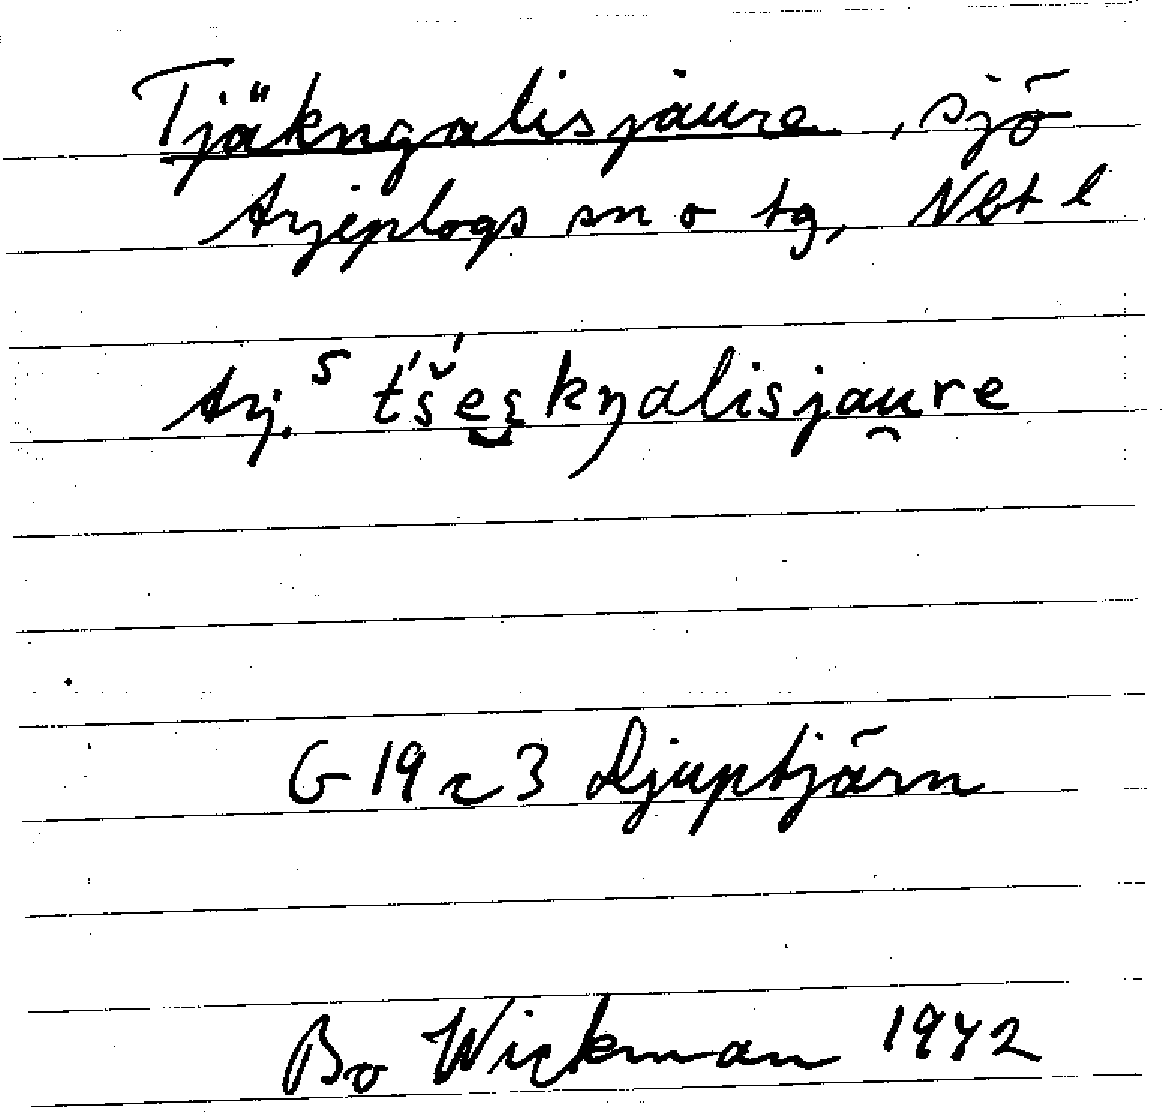 Tjäkngalisjaure, sjö
Arjeplogs sn o tg, Nbt l
Arj. S t́š́ee̜kŋalisjau̯re
G 19 c 3 Djuptjärn
Bo Wickman 1942